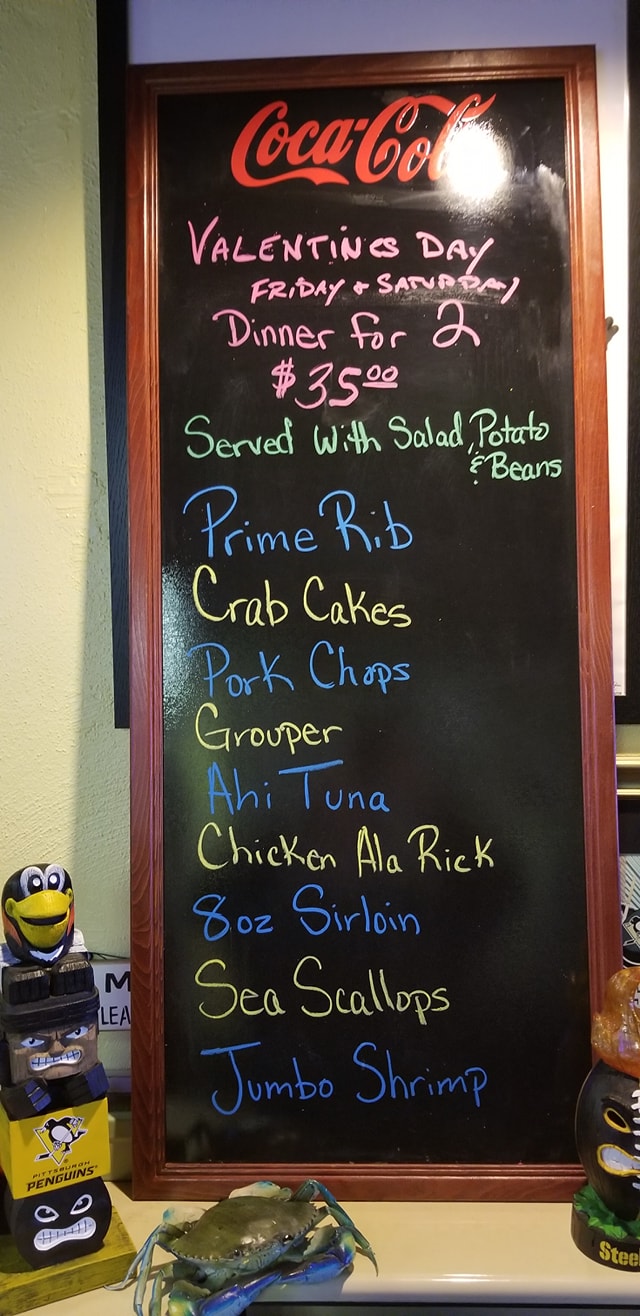 Coca-Cola
VALENTINES DAY
FRIDAY & SATURDAY
Dinner for 2
$35.00
Served With Salad, Potato
& Beans
Prime Rib
Crab Cakes
Pork Chops
Grouper
Ahi Tuna
Chicken Ala Rick
8oz Sirloin
Sea Scallops
Jumbo Shrimp
M
LEA
PITTSBURGH
PENGUINS
Stee